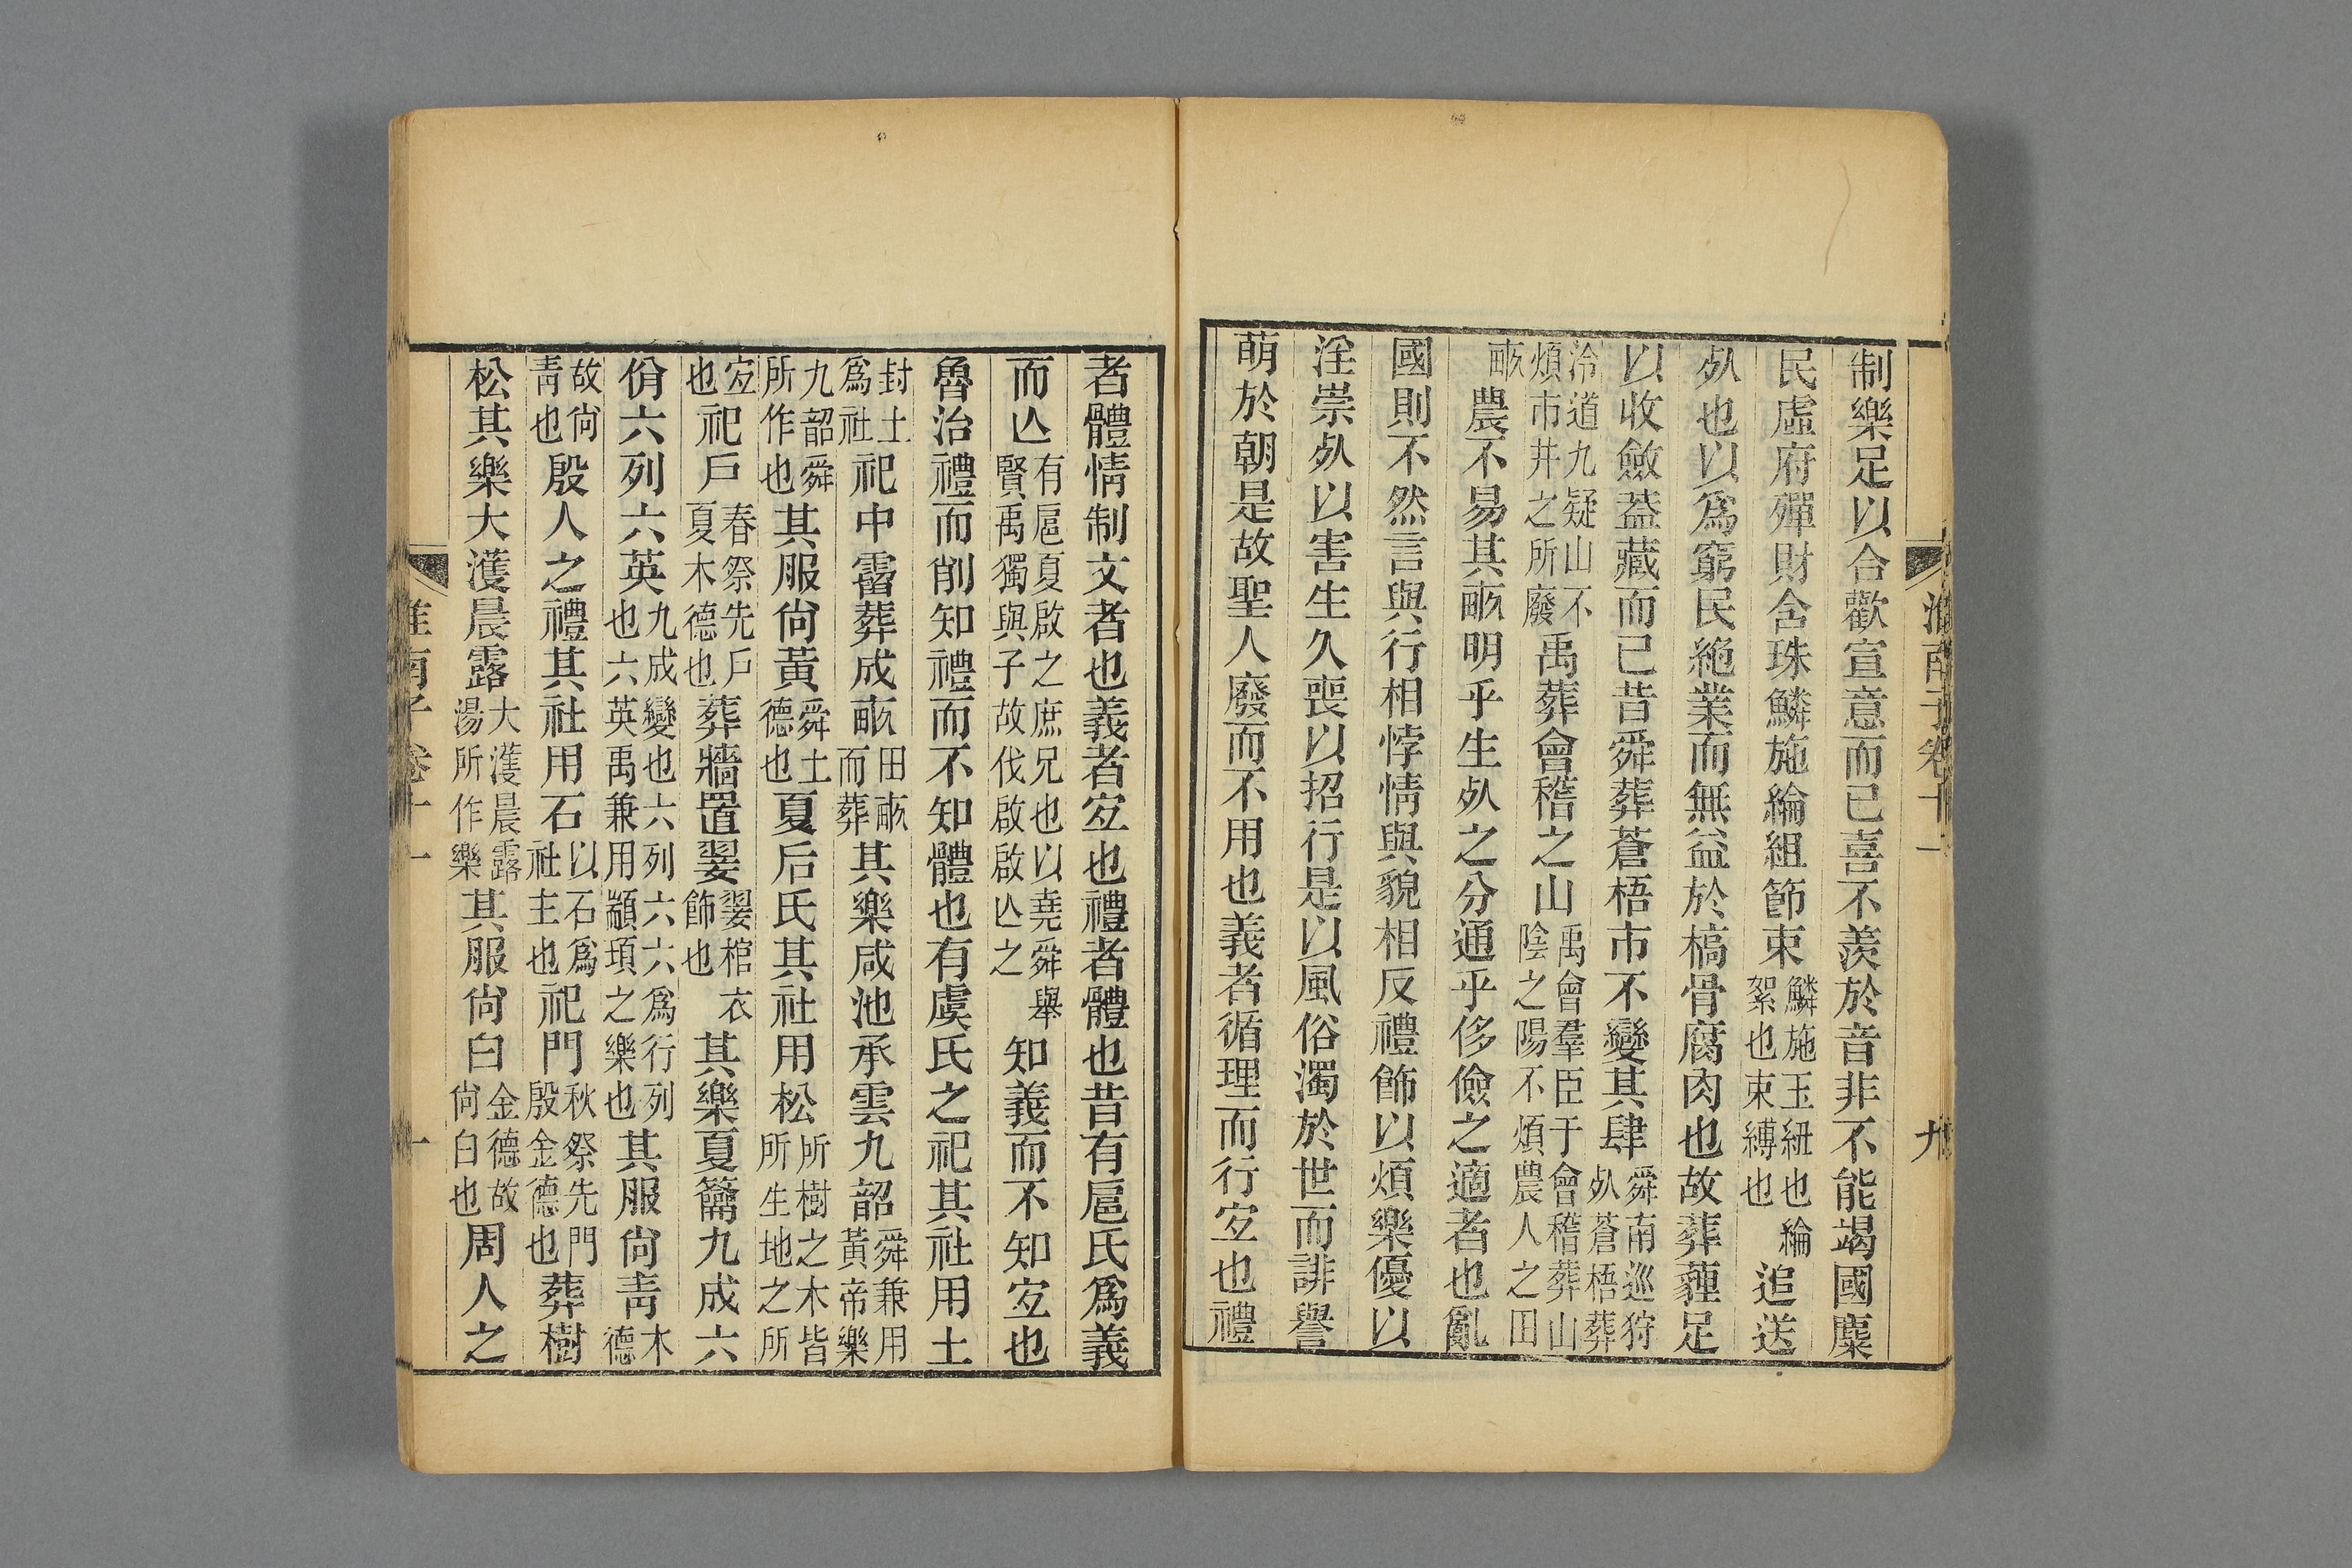 淮南子卷十一
九
制樂足以合歡宣意而已喜不羨於音非不能竭國麋
民虛府殫財含珠鱗施綸組節束鱗施玉紐也綸絮也束縛也追送
死也以爲窮民絶業而無益於槁骨腐肉也故葬薶足
以收斂葢藏而已昔舜葬蒼梧市不變其肆舜南巡狩死蒼梧葬
泠道九疑山不煩市井之所廢禹葬會稽之山禹會羣臣于會稽葬山陰之陽不煩農人之田
畝農不易其畝明乎生死之分通乎侈儉之適者也亂
國則不然言與行相悖情與貌相反禮飾以煩樂優以
淫崇死以害生久喪以招行是以風俗濁於世而誹譽
萌於朝是故聖人廢而不用也義者循理而行宐也禮
者體情制文者也義者宐也禮者體也昔有扈氏爲義
而亾有扈夏啟之庶兄也以堯舜舉賢禹獨與子故伐啟啟亾之知義而不知宐也
魯治禮而削知禮而不知體也有虞氏之祀其社用土
封土爲社祀中霤葬成畝田畝而葬其樂咸池承雲九韶舜兼用黃帝樂
九韶舜所作也其服尙黃舜土德也夏后氏其社用松所樹之木皆所生地之所
宐也祀戶春祭先戶夏木德也葬牆置翣翣棺衣飾也其樂夏籥九成六
佾六列六英九成變也六列六六爲行列也六英禹兼用顓頊之樂也其服尙靑木德
故尙靑也殷人之禮其社用石以石爲社主也祀門秋祭先門殷金德也葬樹
松其樂大濩晨露大濩晨露湯所作樂其服尙白金德故尙白也周人之
淮南子卷十一
十